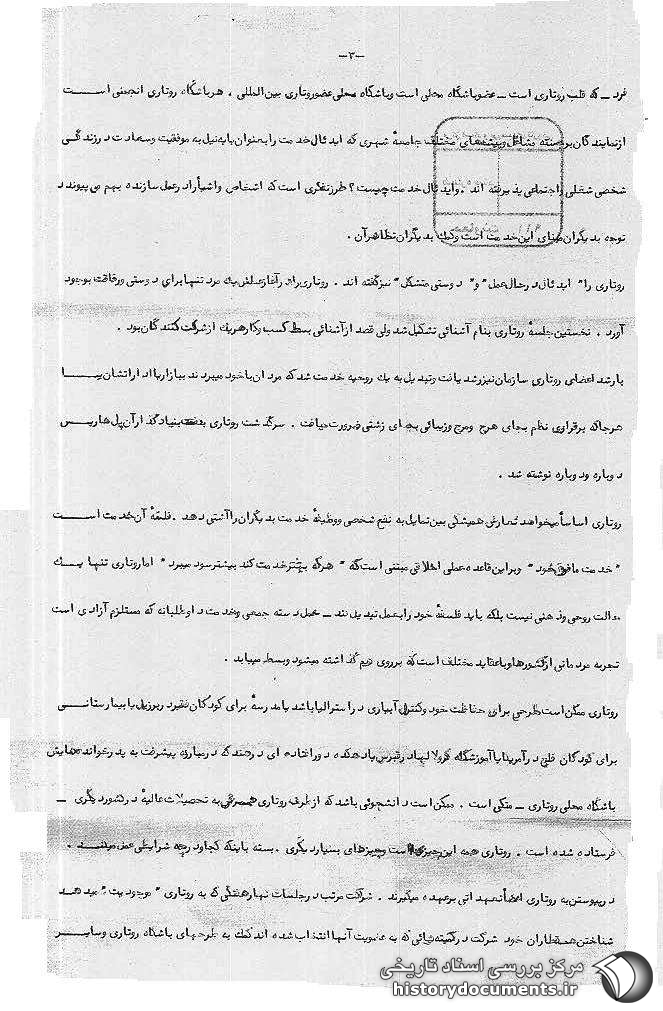 -۳-
فرد ــ که قلب روتاری است ــ عضو باشگاه محلی است و باشگاه محلی عضو روتاری بین‌المللی . هر باشگاه روتاری انجمنی است
از نمایندگان برجسته مشاغل و پیشه‌های مختلف جامعهٔ شهری که ایدئال خدمت را بعنوان پایه نیل به موفقیت و سعادت در زندگی
شخصی شغلی و اجتماعی پذیرفته اند . و اید ئال خدمت چیست ؟ طرز تفکری است که اشخاص و اشیأ را در عمل سازنده بهم می پیوندد
توجه بدیگران مبنای این خدمت است و کمک بدیگران تظاهر آن .
روتاری را " ایدئال در حال عمل " و " دوستی متشکل " نیز گفته اند . روتاری را در آغاز عملش یک مرد تنها برای دوستی و رفاقت بوجود
آورد . نخستین جلسهٔ روتاری بنام آشنائی تشکیل شد ولی قصد از آشنائی بسط کسب و کار هر یک از شرکت کنندگان بود .
با رشد اعضای روتاری سازمان نیز رشد یافت و تبدیل به یک روحیه خدمت شد که مردان با خود میبردند ببازارها ادارا‌تشان یا
هرجا که برقراری نظم بجای هرج و مرج و زیبائی بجای زشتی ضرورت میافت . سرگذشت روتاری بدست بنیادگذار آن پل هاریس
دوباره و دوباره نوشته شد .
روتاری اساساً میخواهد تعارض همیشگی بین تمایل به نفع شخصی و وظیفهٔ خدمت بدیگران را آشتی دهد . فلسفهٔ آن خدمت است
" خدمت مافوق خود " و بر این قاعده عملی اخلاقی مبتنی است که " هر که بهتر خدمت کند بیشتر سود میبرد " اما روتاری تنها یک
حالت روحی و ذهنی نیست بلکه باید فلسفهٔ خود را بعمل تبدیل کند ــ عمل دسته جمعی و خدمت داوطلبانه که مستلزم آزادی است
تجربه مردمانی از کشورها و با عقاید مختلف است که برروی هم گذاشته میشود و بسط میابد .
روتاری ممکن است طرحی برای حفاظت خود و کنترل آبیاری در استرالیا باشد یا مدرسهٔ برای کودکان فقیر در برزیل یا بیمارستانی
برای کودکان فلج در آمریکا یا آموزشگاه در دهکده دور افتاده ای در هند که در مبارزه پیشرفت به پدرخوانده‌هایش
باشگاه محلی روتاری ــ متکی است . ممکن است دانشجوئی باشد که از طرف روتاری به تحصیلات عالیه در کشور دیگری ــ
فرستاده شده است . روتاری همه این چیزها است و چیزهای بسیار دیگری . بسته باینکه کجا و در چه شرایطی عمل میکند .
در پیوستن به روتاری اعضأ تعهداتی بر عهده میگیرند . شرکت مرتب در جلسات نهار هفتگی که به روتاری " موجودیت " میدهد
شناختن همقطاران خود شرکت در کمیته هائی که به عضویت آنها انتخاب شده اند کمک به طرحهای باشگاه روتاری و سایر
مرکز بررسی اسناد تاریخی
historydocuments.ir